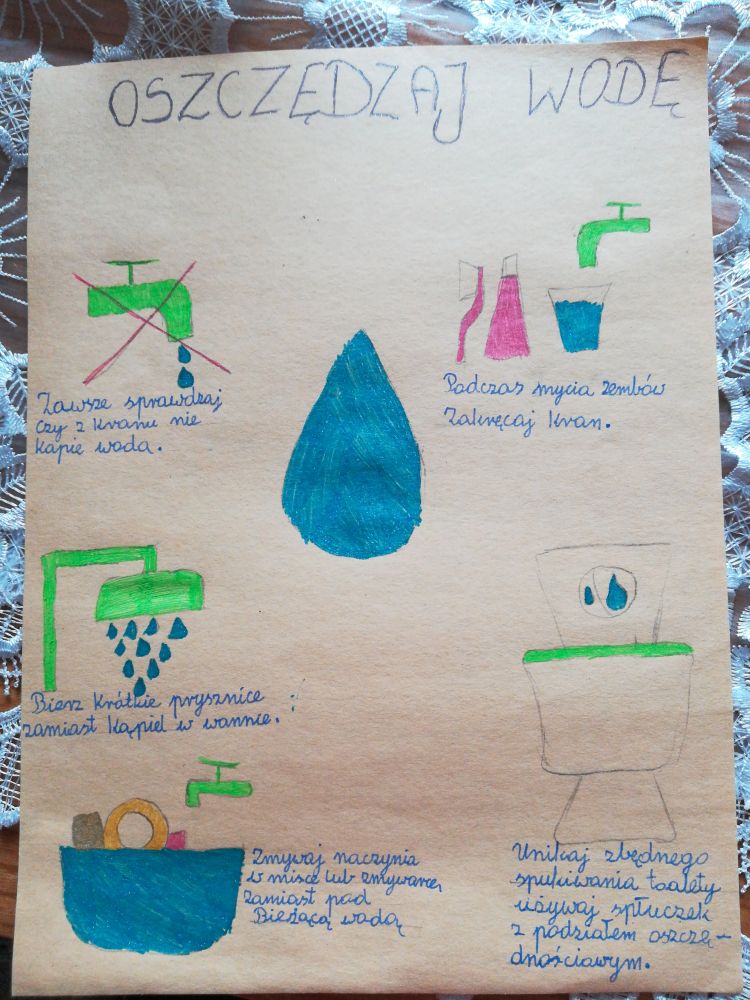 OSZCZĘDZAJ WODĘ
Zawsze sprawdzaj
czy z kranu nie
kapie woda.
Podczas mycia zembów
Zakręcaj kran.
Bierz krótkie prysznice
zamiast kąpiel w wannie.
Zmywaj naczynia
w misce lub zmywarce,
zamiast pod
Bieżącą wodą
Unikaj zbędnego
spukiwania toalety
używaj spłuczek
z podziałem oszczę-
dnościowym.